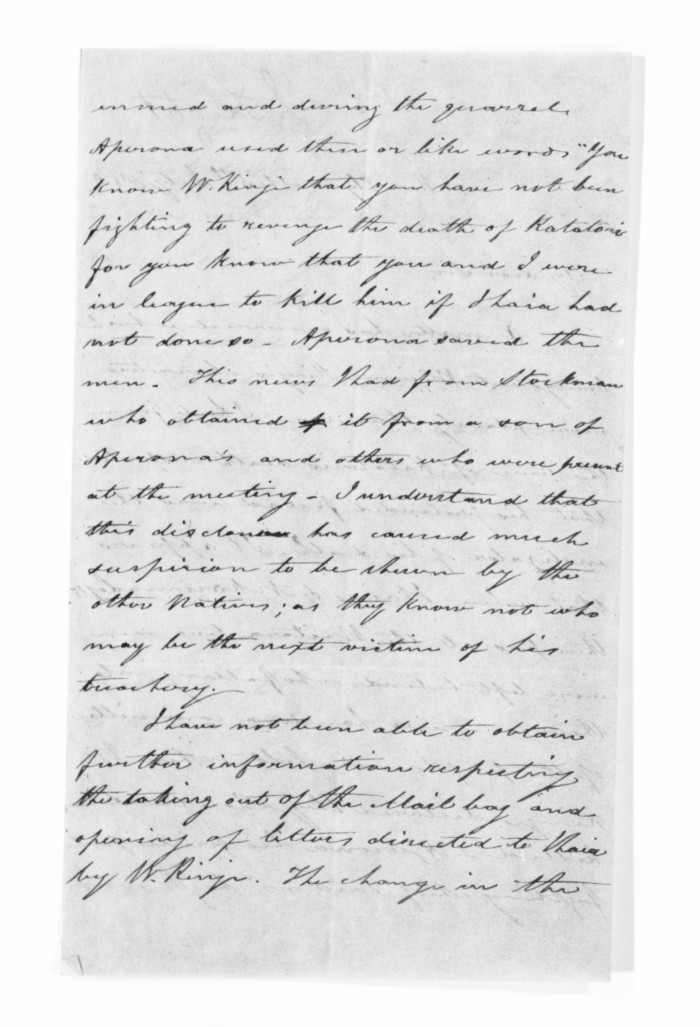 ensued and during the quarrel
Aperona used these or like words "You
know W. Kingi that you have not been
fighting to revenge the death of Katatori
for you know that you and I were
in league to kill him if Ihaia had
not done so - Aperona saved the
men - This news I had from Stockman
who obtained it from a son of
Aperona's and others who were present
at the meeting - I understand that
this disclosure has caused much
suspicion to be shewn by the
other Natives; as they know not who
may be the next victim of his
treachery.
I have not been able to obtain
further information respecting
the taking out of the Mail bag and
opening of letters directed to Ihaia
by W. Kingi. The change in the